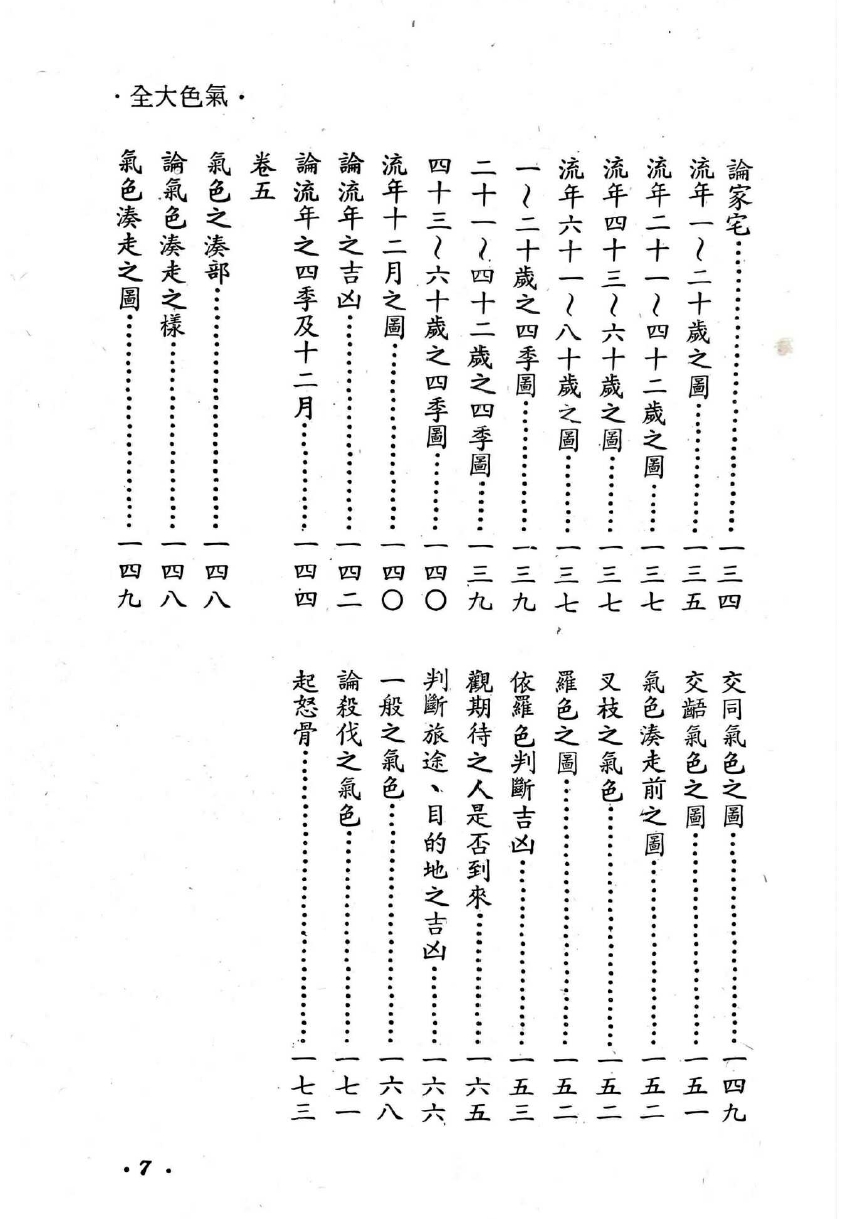 ·全大色氣·
論家宅……一三四
流年一~二十歲之圖……一三五
流年二十一~四十二歲之圖……一三七
流年四十三~六十歲之圖……一三七
流年六十一~八十歲之圖……一三七
一~二十歲之四季圖……一三九
二十一~四十二歲之四季圖……一三九
四十三~六十歲之四季圖……一四〇
流年十二月之圖……一四〇
論流年之吉凶……一四二
論流年之四季及十二月……一四四
卷五
氣色之湊部……一四八
論氣色湊走之樣……一四八
氣色湊走之圖……一四九
交同氣色之圖……一四九
交齬氣色之圖……一五一
氣色湊走前之圖……一五二
叉枝之氣色……一五二
羅色之圖……一五二
依羅色判斷吉凶……一五三
觀期待之人是否到來……一六五
判斷旅途、目的地之吉凶……一六六
一般之氣色……一六八
論殺伐之氣色……一七一
起怒骨……一七三
·7·